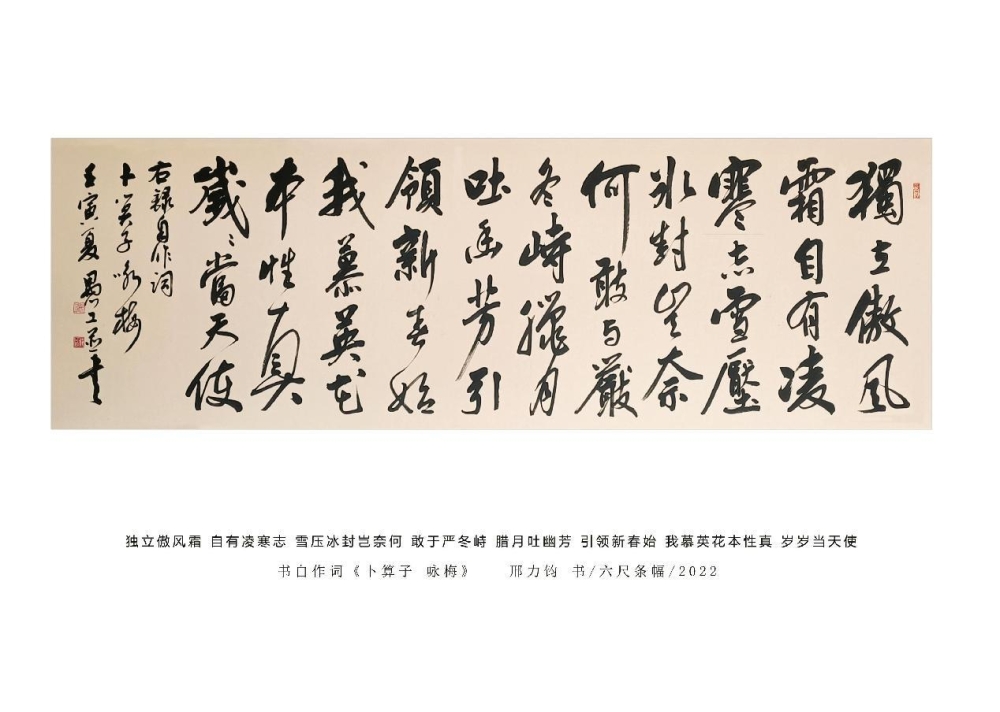 獨立傲風
霜自有凌
寒志雪壓
冰封豈奈
何敢与嚴
冬峙臘月
吐幽芳引
領新春始
我慕英花
本性真
歲々當天使
右録自作词
卜算子咏梅
壬寅夏 书
独立傲风霜 自有凌寒志 雪压冰封岂奈何 敢于严冬峙 腊月吐幽芳 引领新春始 我慕英花本性真 岁岁当天使
书自作词《卜算子 咏梅》 邢力钧 书/六尺条幅/2022